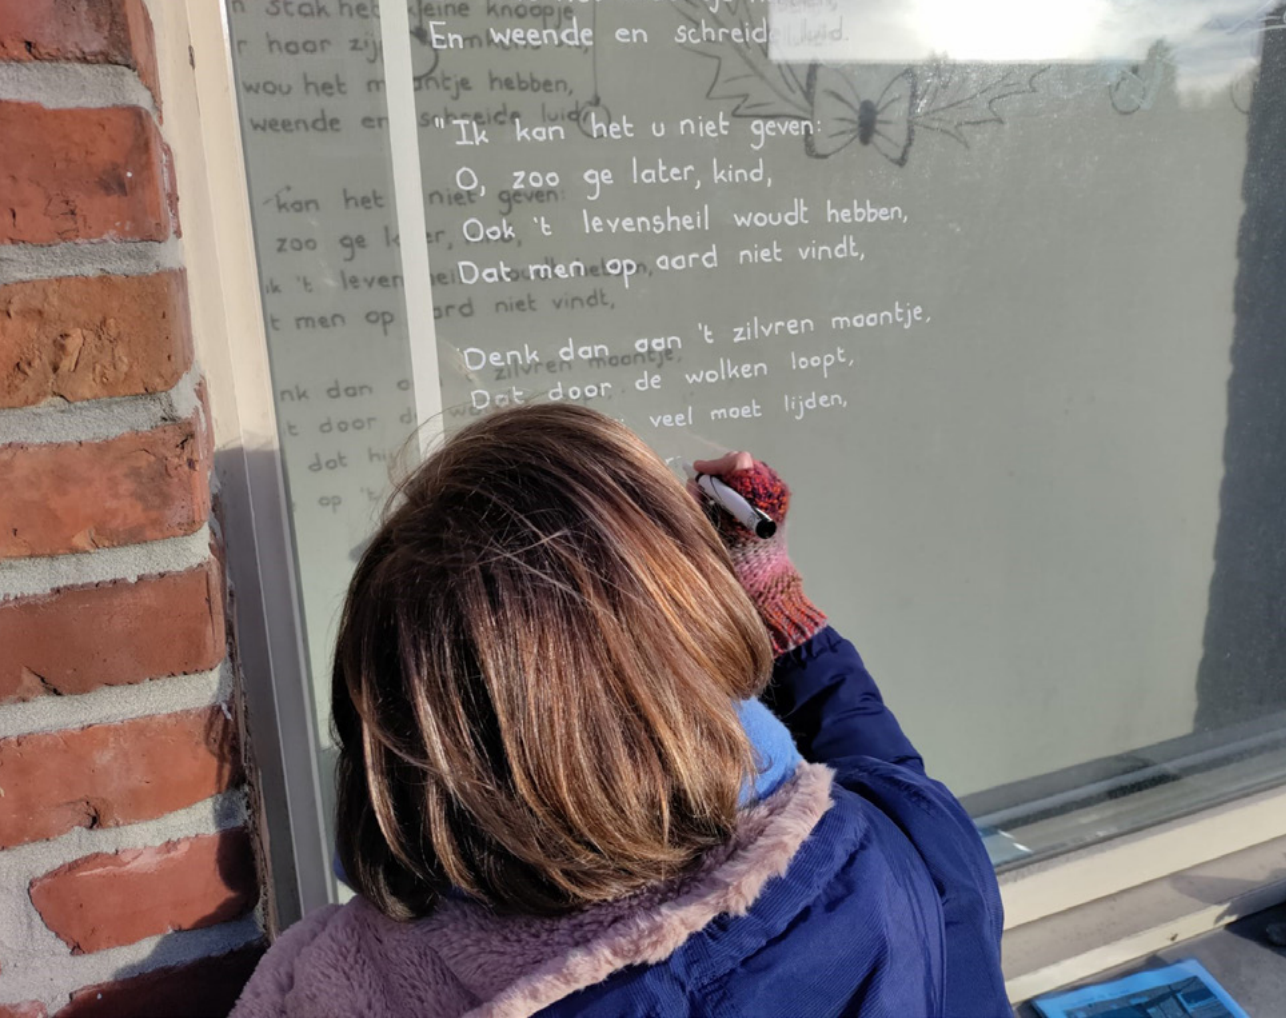 En weende en schreide luid.
"Ik kan het u niet geven:
O, zoo ge later, kind,
Ook 't levensheil woudt hebben,
Dat men op aard niet vindt,
Denk dan aan 't zilvren maantje,
Dat door de wolken loopt,
veel moet lijden,